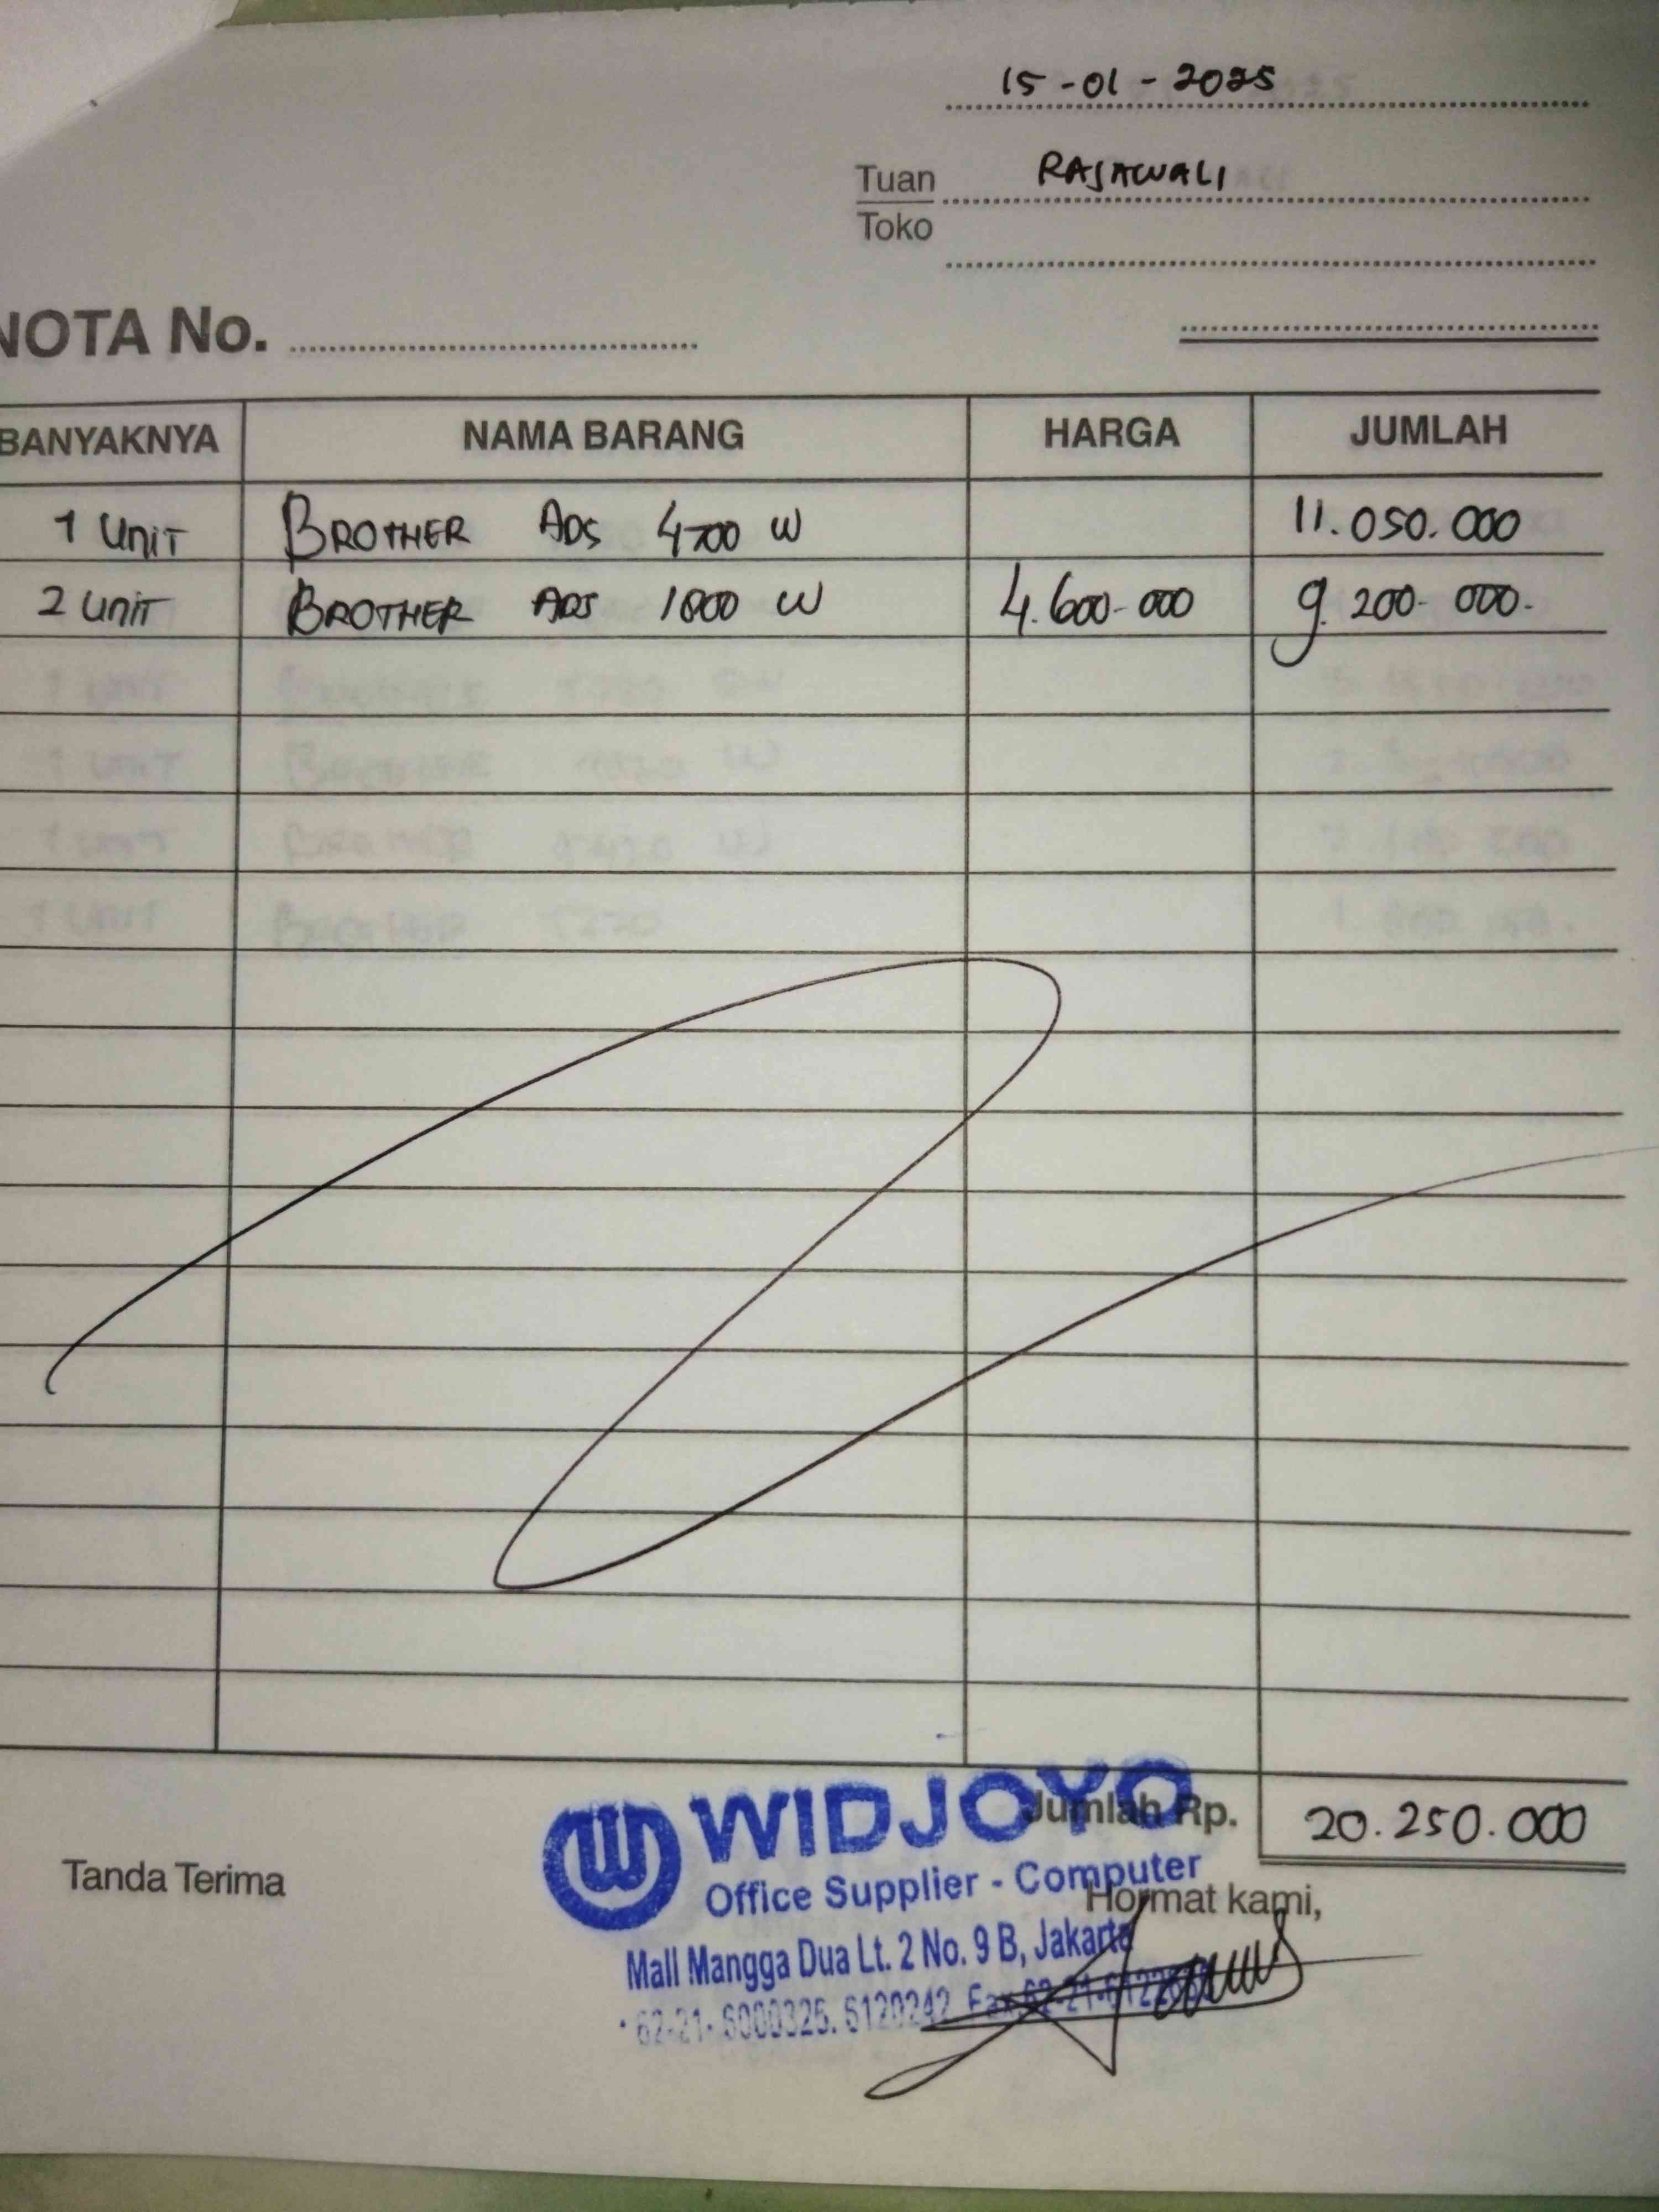 15-01-2025
Tuan RAJAWALI
Toko
NOTA No.
BANYAKNYA NAMA BARANG HARGA JUMLAH
1 UNIT BROTHER ADS 4700 W 11.050.000
2 UNIT BROTHER ADS 1800 W 4.600.000 9.200.000.
1 UNIT BROTHER
1 UNIT BROTHER W
1 UNIT BROTHER W
1 UNIT BROTHER
WIDJOYO
Jumlah Rp. 20.250.000
Tanda Terima
Office Supplier - Computer
Hormat kami,
Mall Mangga Dua Lt. 2 No. 9 B, Jakarta
62-21- 6120242 Fax